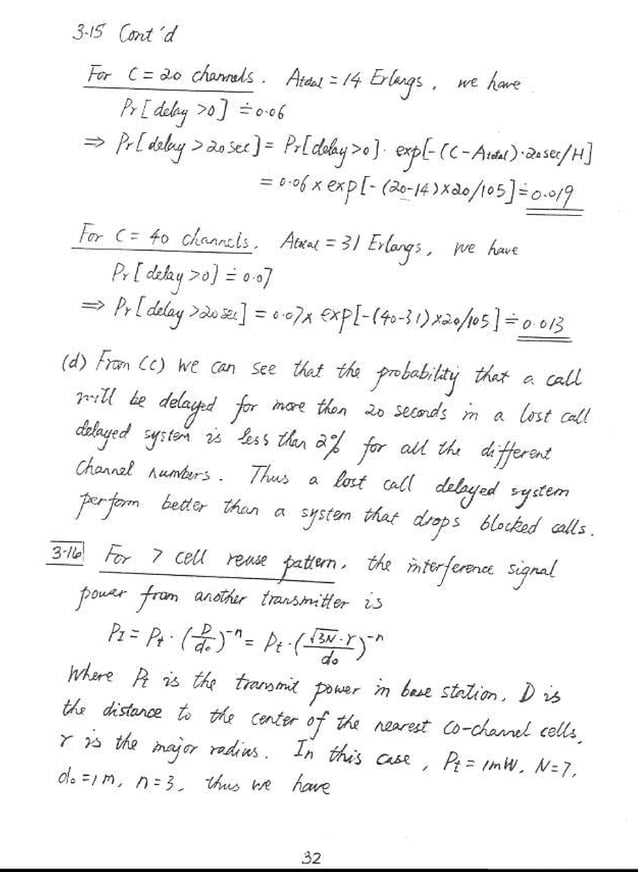 3-15 Cont'd
For C = 20 channels. Atotal = 14 Erlangs, we have
Pr[delay >0] ≐ 0.06
⇒ Pr[delay > 20 sec] = Pr[delay >0]· exp[-(C-Atotal)·20sec/H]
= 0.06 x exp[-(20-14)x20/105] ≐ 0.019
For C = 40 channels, Atotal = 31 Erlangs, we have
Pr[delay >0] ≐ 0.07
⇒ Pr[delay >20 sec] = 0.07 x exp[-(40-31)x20/105] ≐ 0.013
(d) From (c) we can see that the probability that a call
will be delayed for more than 20 seconds in a lost call
delayed system is less than 2% for all the different
channel numbers. Thus a lost call delayed system
perform better than a system that drops blocked calls.
3-16 For 7 cell reuse pattern, the interference signal
power from another transmitter is
PI = Pt · (D/do)^-n = Pt · (√3N·r/do)^-n
Where Pt is the transmit power in base station, D is
the distance to the center of the nearest co-channel cells,
r is the major radius. In this case, Pt = 1mW, N=7,
do = 1m, n=3, thus we have
32